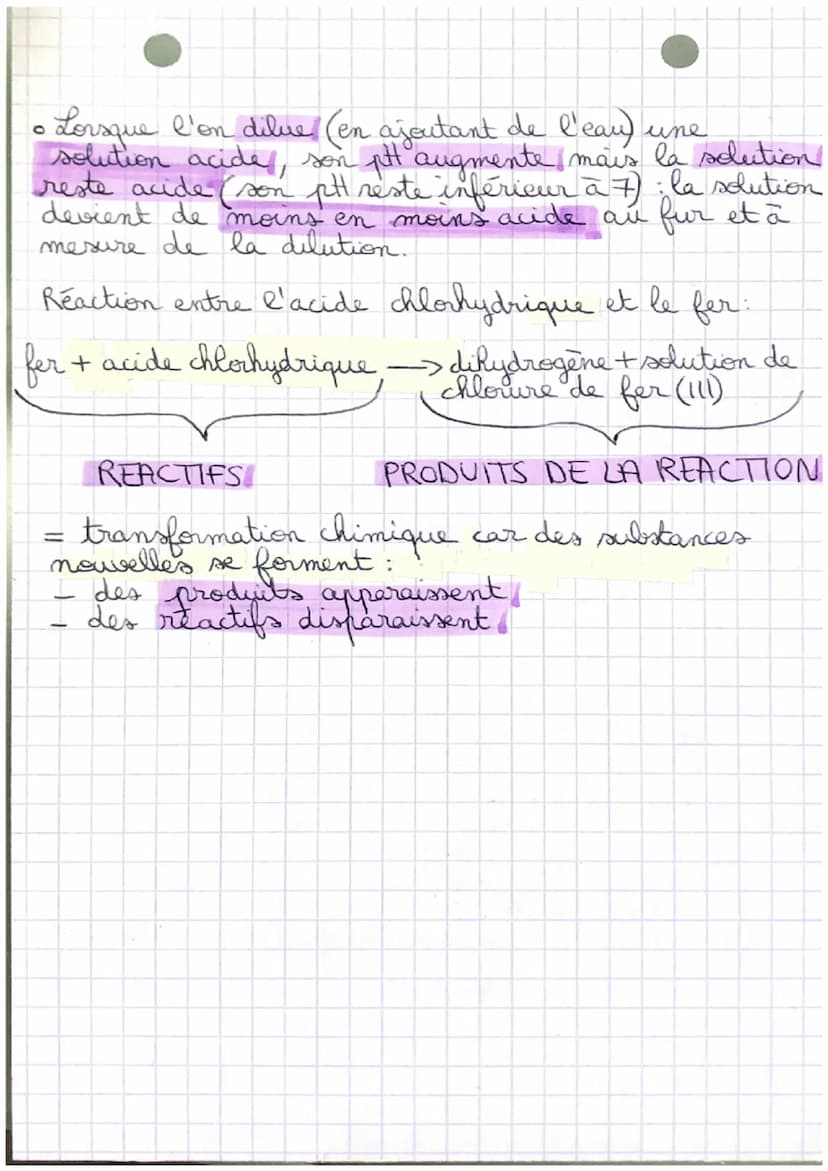 • Lorsque l'on dilue (en ajoutant de l'eau) une
solution acide, son pH augmente mais la solution
reste acide (son pH reste inférieur à 7) : la solution
devient de moins en moins acide au fur et à
mesure de la dilution.
Réaction entre l'acide chlorhydrique et le fer :
fer + acide chlorhydrique → dihydrogène + solution de
chlorure de fer (III)
REACTIFS PRODUITS DE LA REACTION
= transformation chimique car des substances
nouvelles se forment :
- des produits apparaissent
- des réactifs disparaissent